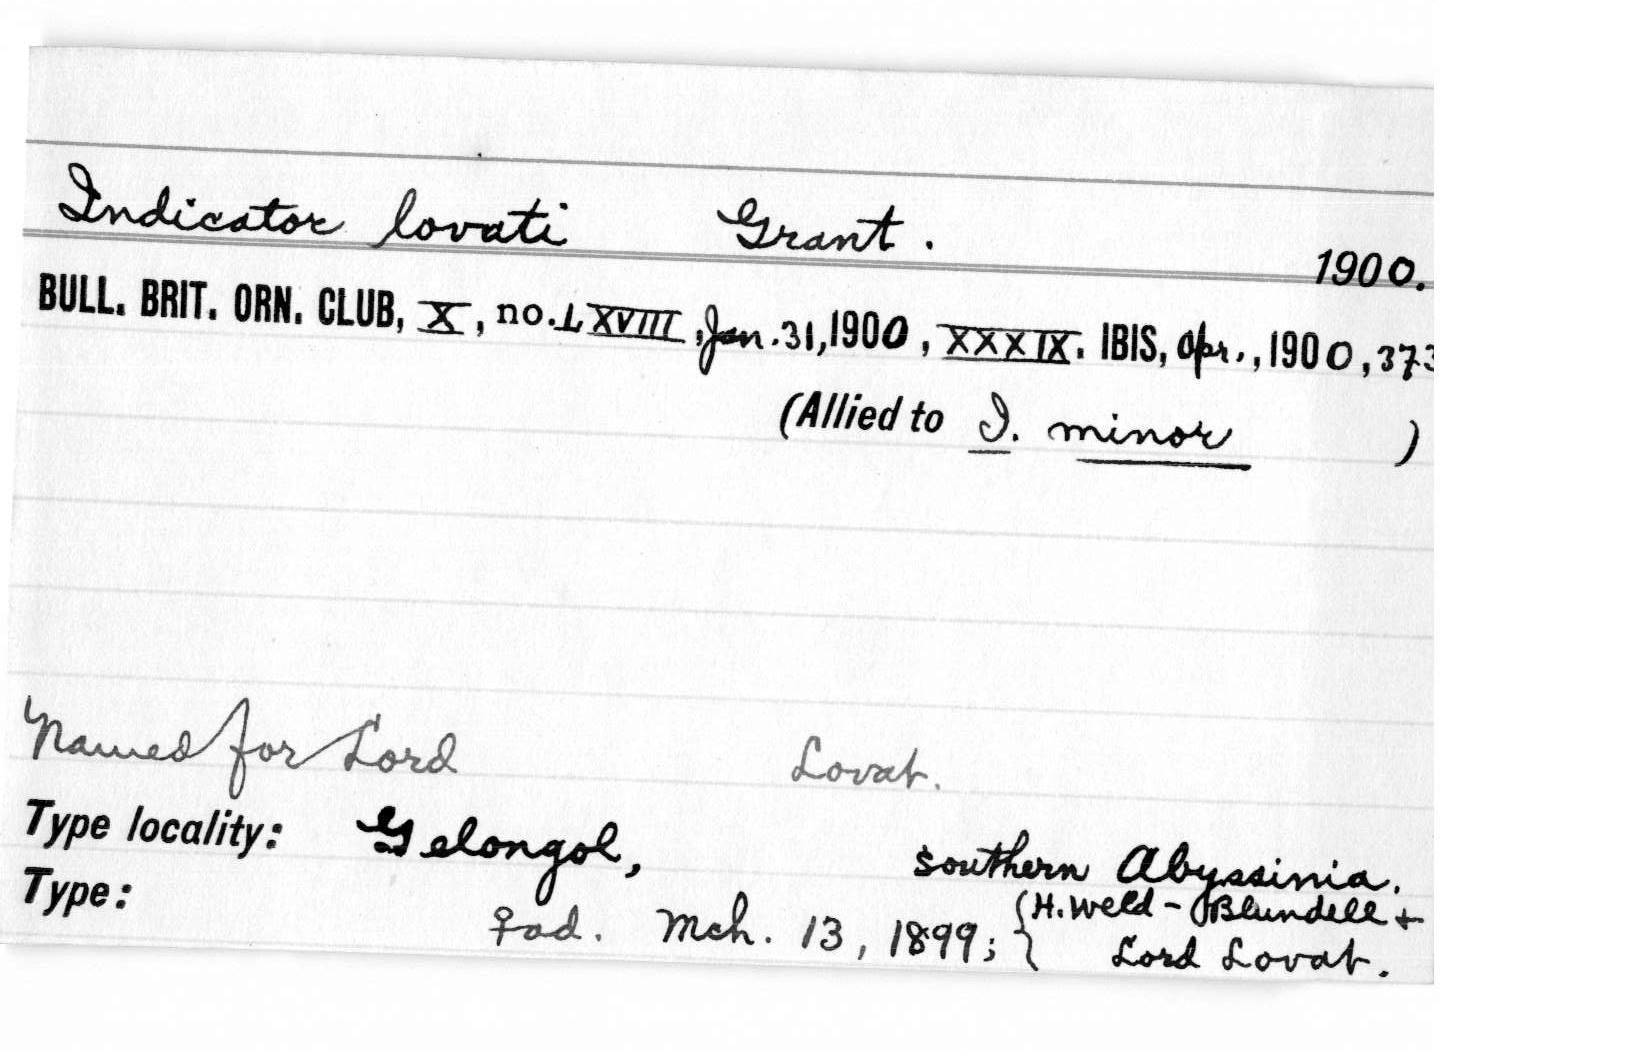 Indicator lovati Grant.
1900.
BULL. BRIT. ORN. CLUB, X, no. LXVIII, Jan. 31, 1900, XXXIX. IBIS, Apr., 1900, 373
(Allied to I. minor )
Named for Lord Lovat.
Type locality: Gelongol, southern Abyssinia.
Type: ♀ad. Mch. 13, 1899; {H. Weld-Blundell +
Lord Lovat.